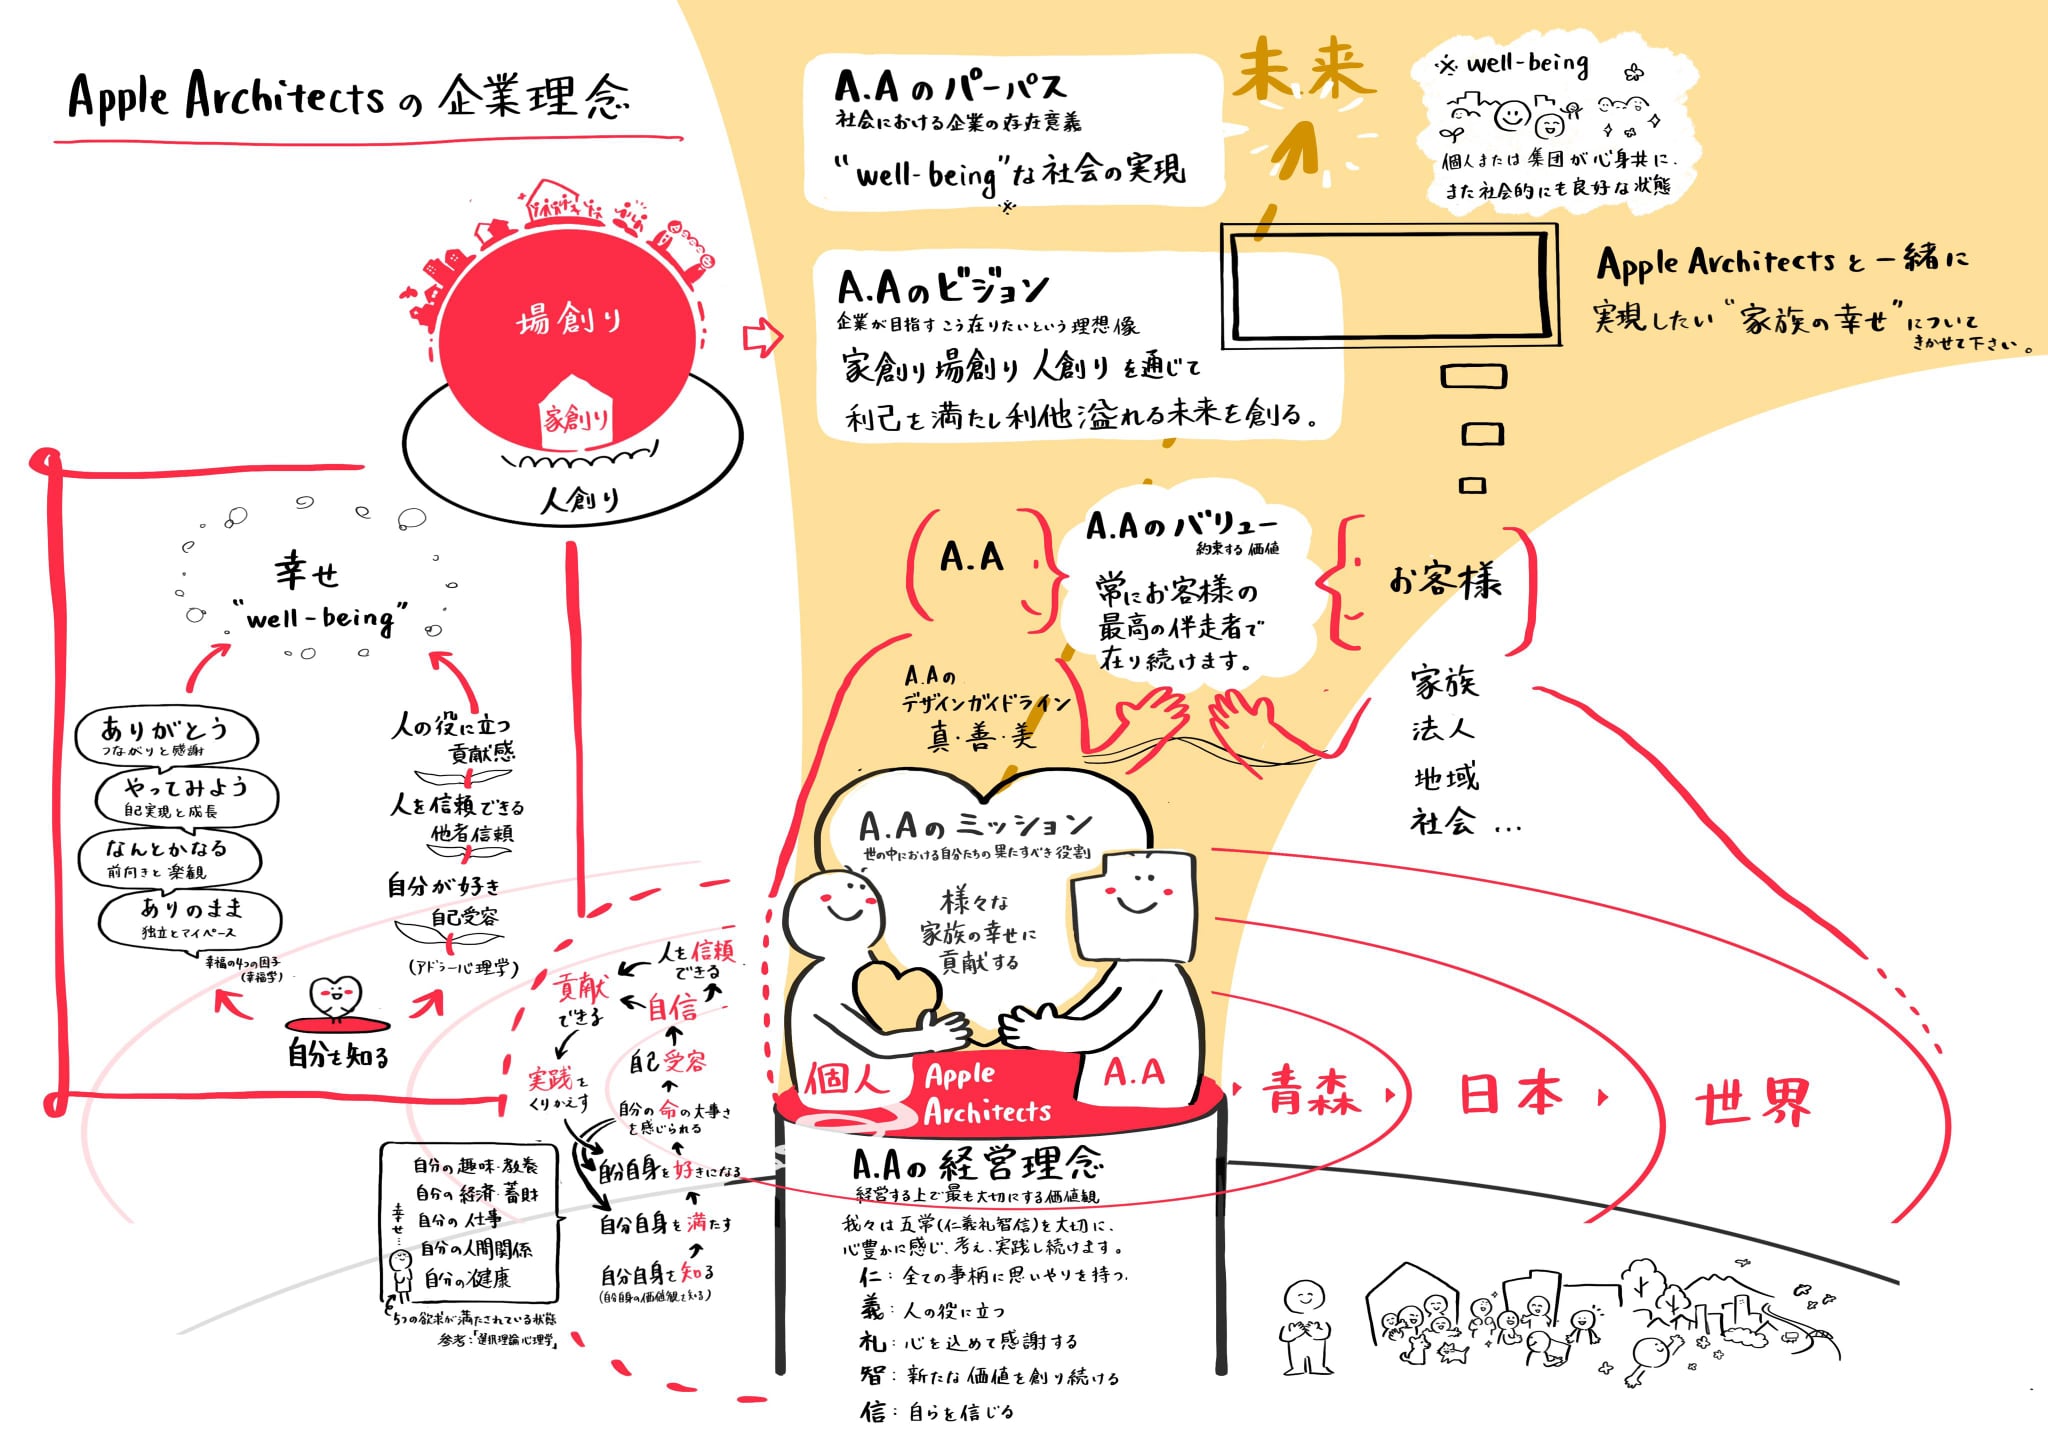 Apple Architectsの企業理念
場創り
家創り
人創り
A.Aのパーパス
社会における企業の存在意義
"well-being"な社会の実現
※
未来
※ well-being
個人または集団が心身共に、
また社会的にも良好な状態
A.Aのビジョン
企業が目指すこう在りたいという理想像
家創り 場創り 人創り を通じて
利己を満たし利他溢れる未来を創る。
Apple Architectsと一緒に
実現したい"家族の幸せ"について
きかせて下さい。
A.A
A.Aのバリュー
約束する価値
常にお客様の
最高の伴走者で
在り続けます。
お客様
家族
法人
地域
社会 …
A.Aの
デザインガイドライン
真・善・美
幸せ
"well-being"
ありがとう
つながりと感謝
やってみよう
自己実現と成長
なんとかなる
前向きと楽観
ありのまま
独立とマイペース
幸福の4つの因子
(幸福学)
人の役に立つ
貢献感
人を信頼できる
他者信頼
自分が好き
自己受容
(アドラー心理学)
自分を知る
人を信頼
できる
貢献
できる
自信
自己受容
実践を
くりかえす
自分の命の大事さ
を感じられる
自分自身を好きになる
自分自身を満たす
自分自身を知る
(自分自身の価値観を知る)
自分の趣味・教養
自分の経済・蓄財
自分の仕事
自分の人間関係
自分の健康
幸せ…
5つの欲求が満たされている状態
参考:「選択理論心理学」
A.Aのミッション
世の中における自分たちの果たすべき役割
様々な
家族の幸せに
貢献する
個人
Apple
Architects
A.A
青森
日本
世界
A.Aの経営理念
経営する上で最も大切にする価値観
我々は五常(仁義礼智信)を大切に、
心豊かに感じ、考え、実践し続けます。
仁:全ての事柄に思いやりを持つ.
義:人の役に立つ
礼:心を込めて感謝する
智:新たな価値を創り続ける
信:自らを信じる